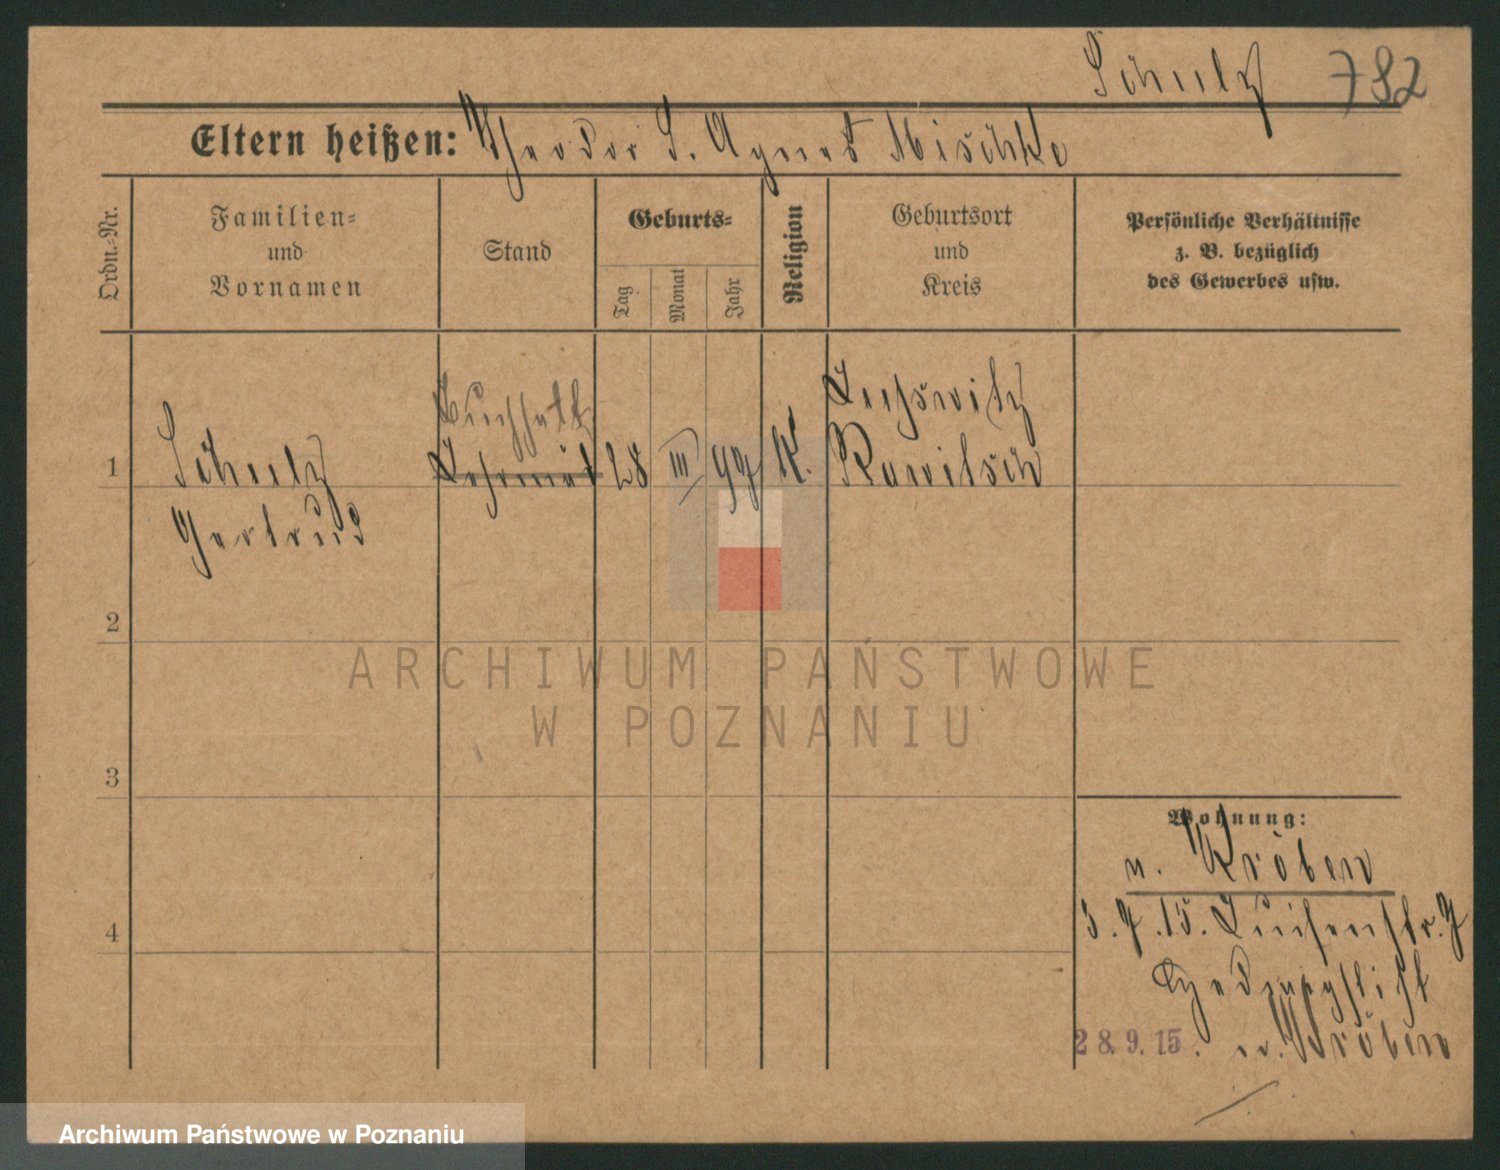 Schulz 782
Eltern heißen: Theodor S. Agnes Mischke
Ordn.-Nr.
Familien-
und
Vornamen
Stand
Geburts-
Tag
Monat
Jahr
Religion
Geburtsort
und
Kreis
Persönliche Verhältnisse
z. B. bezüglich
des Gewerbes usw.
1
Schulz
Gertrud
Buchhalt
28 III 97 K.
Rawitsch
2
3
4
Wohnung:
n. Kröben
3.7.15. Luisenstr.
28.9.15. n. Kröben
ARCHIWUM PAŃSTWOWE
W POZNANIU
Archiwum Państwowe w Poznaniu